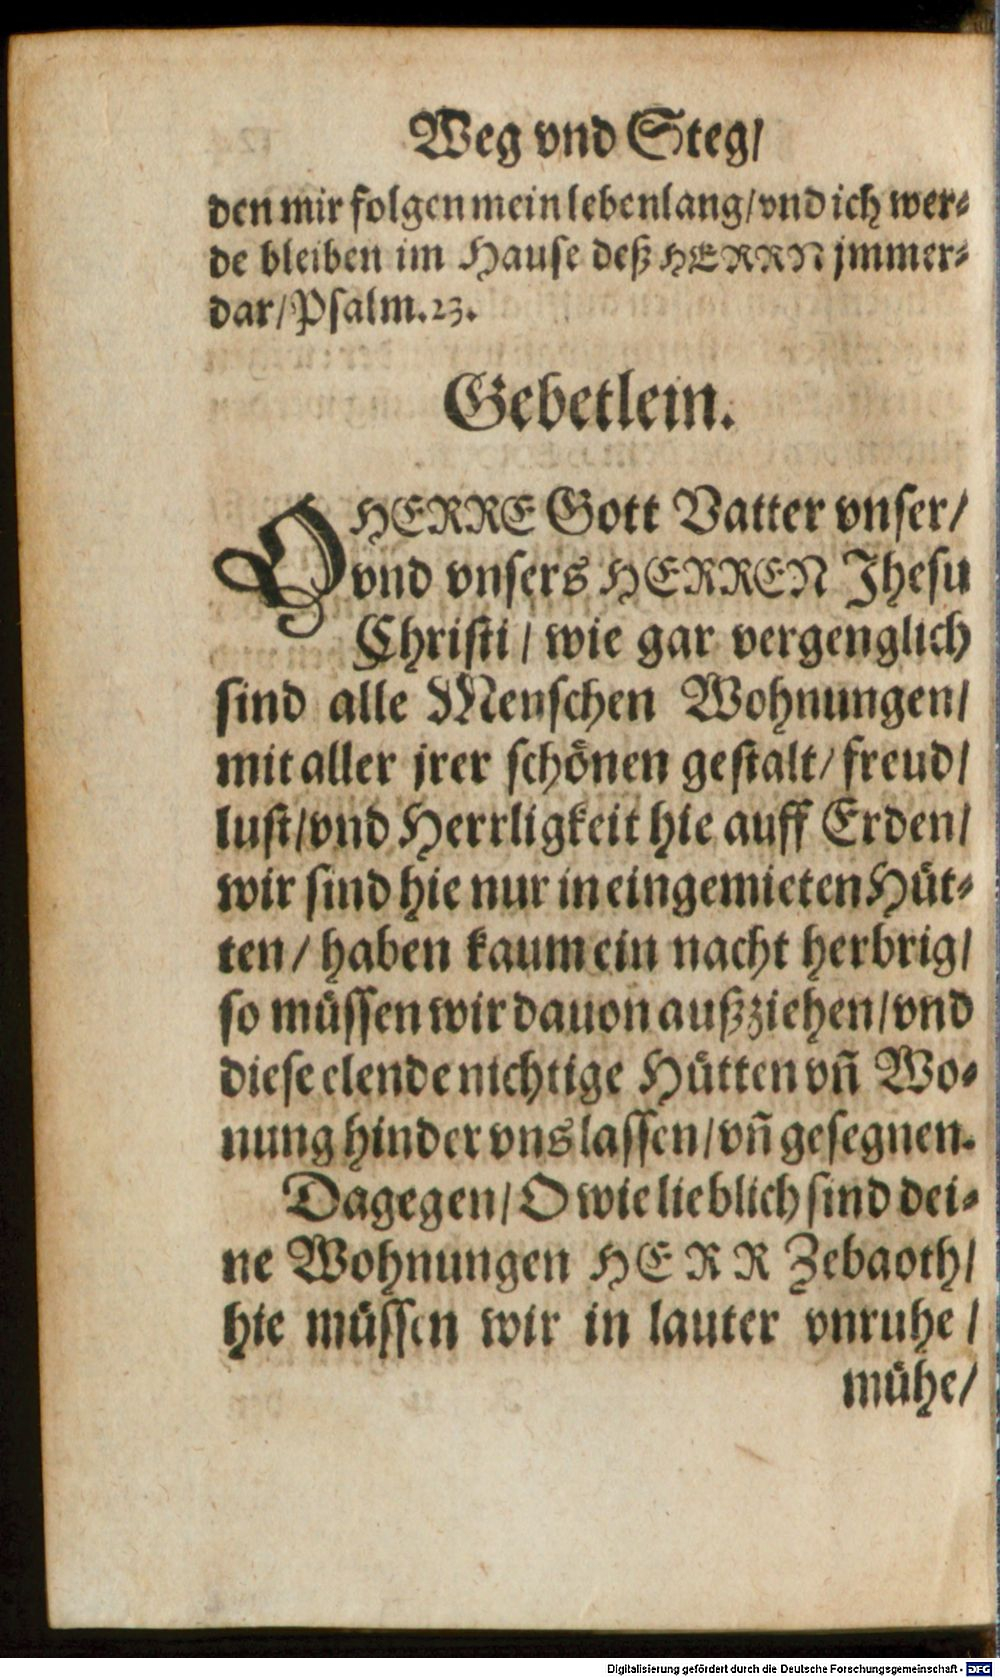 Weg vnd Steg/
den mir folgen mein lebenlang/vnd ich wer⸗
de bleiben im Hause deß HERRN jmmer⸗
dar/Psalm.23.
Gebetlein.
O HERRE Gott Vatter vnser/
vnd vnsers HERREN Jhesu
Christi / wie gar vergenglich
sind alle Menschen Wohnungen/
mit aller jrer schönen gestalt/ freud/
lust/vnd Herrligkeit hie auff Erden/
wir sind hie nur in eingemieten Hüt⸗
ten/ haben kaum ein nacht herbrig/
so müssen wir dauon außziehen/vnd
diese elende nichtige Hütten vñ Wo⸗
nung hinder vns lassen/vñ gesegnen.
Dagegen/ O wie lieblich sind dei⸗
ne Wohnungen HERR Zebaoth/
hie müssen wir in lauter vnruhe /
mühe/
Digitalisierung gefördert durch die Deutsche Forschungsgemeinschaft - DFG